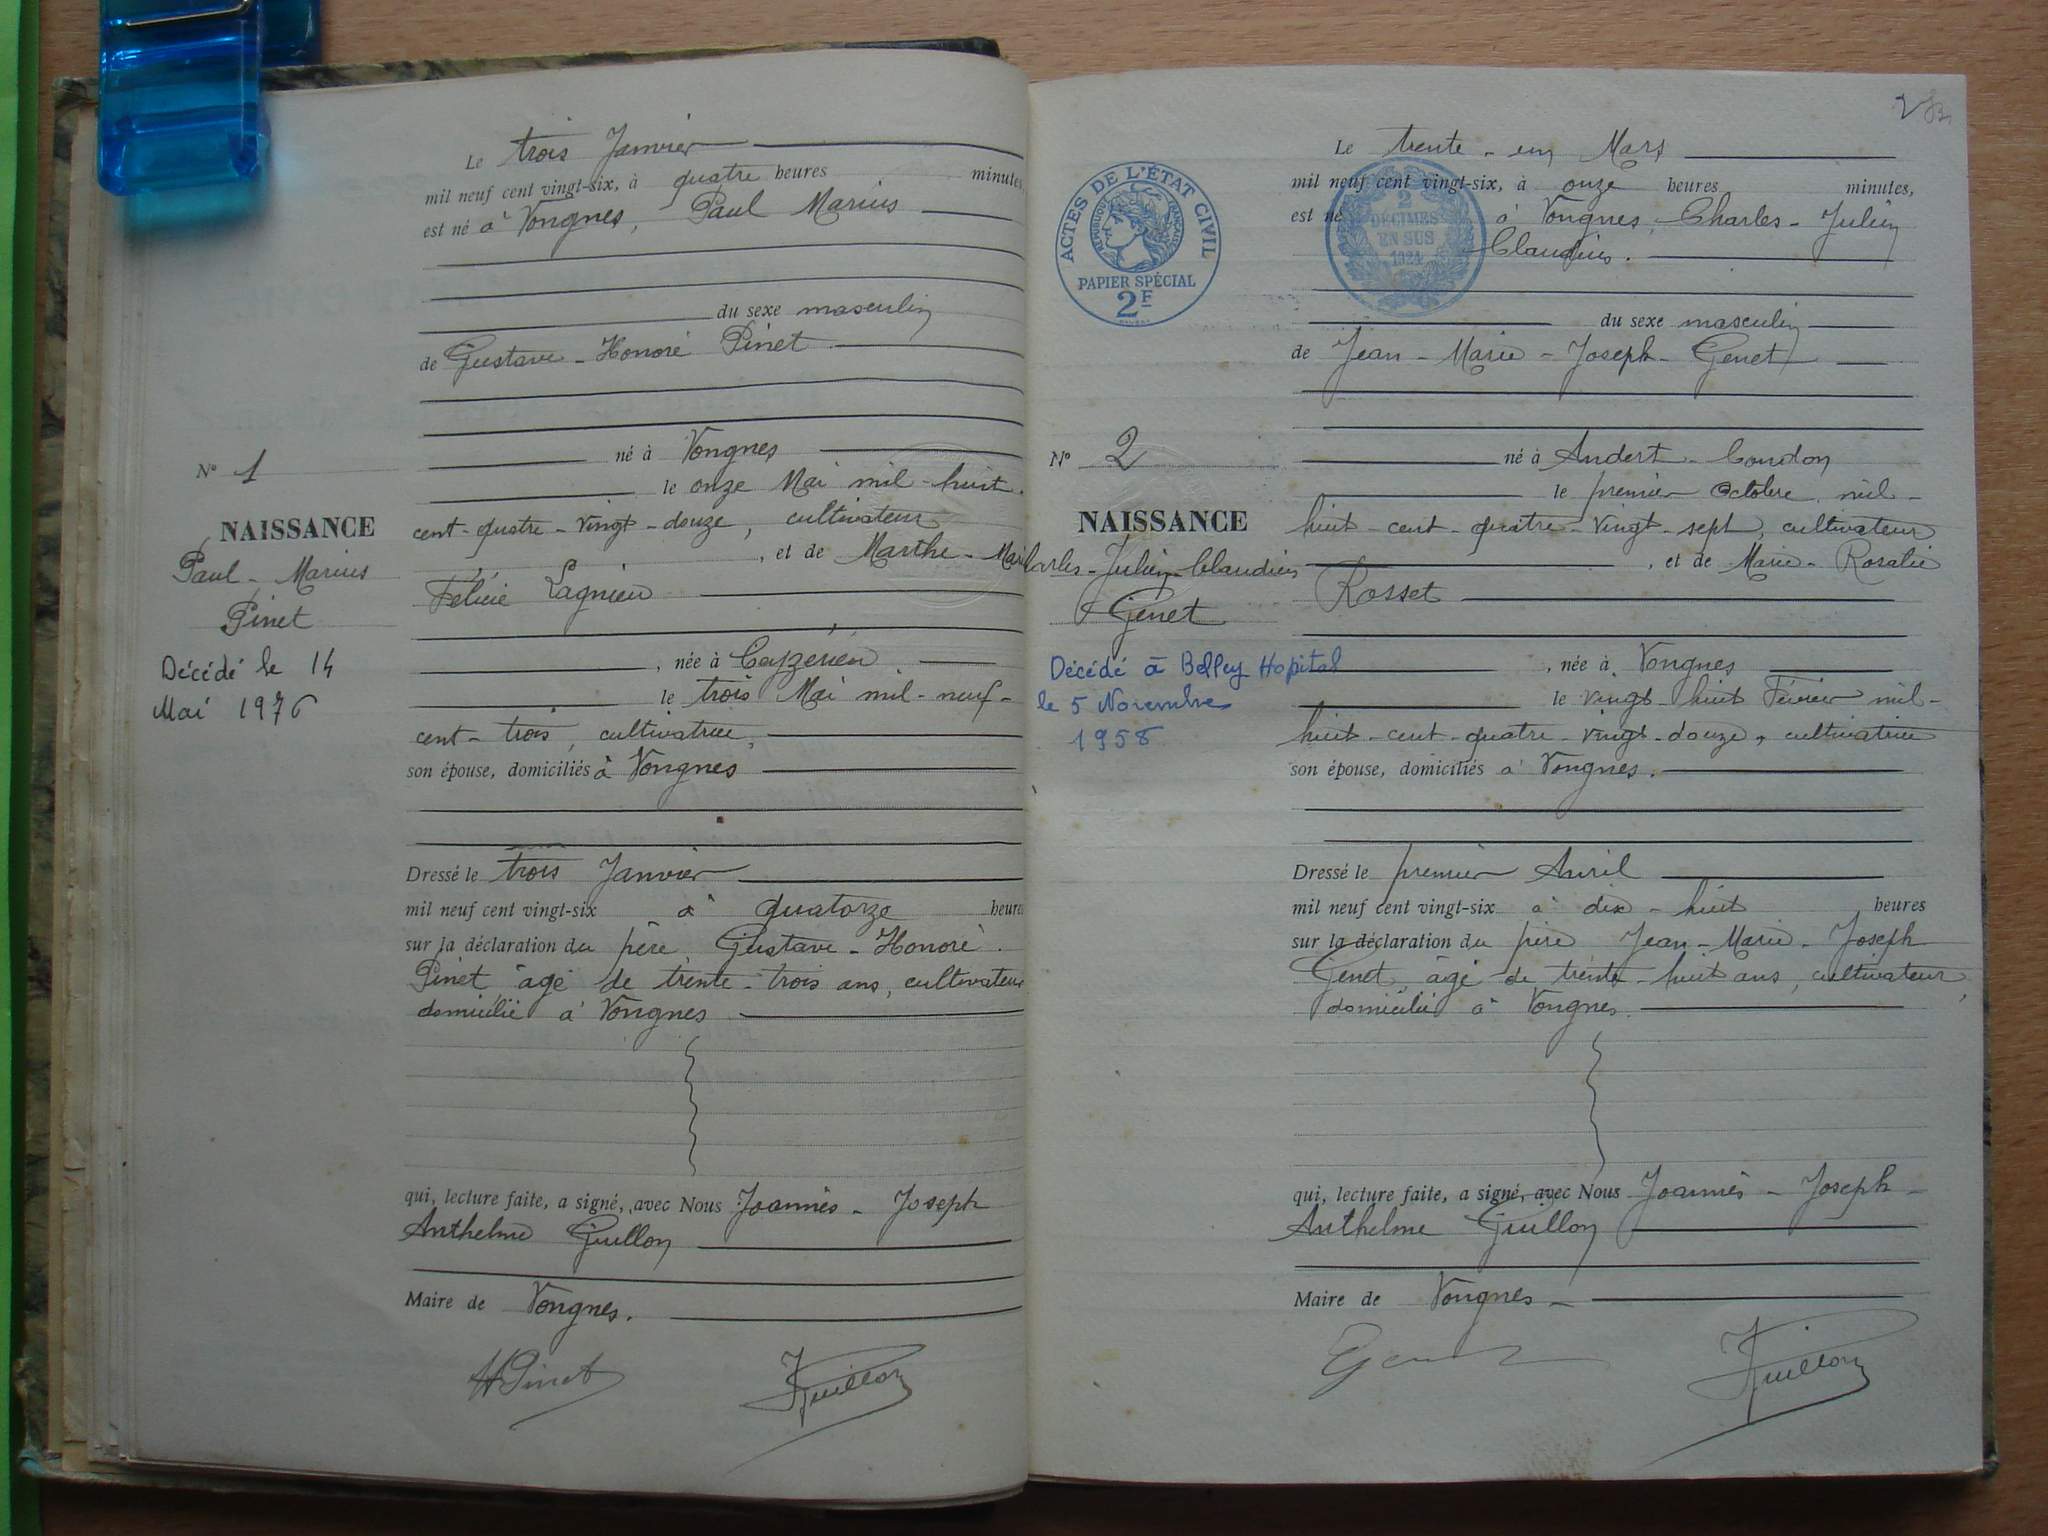 Le trois Janvier
mil neuf cent vingt-six, à quatre heures minutes,
est né à Vongnes, Paul Marius
du sexe masculin
de Gustave-Honoré Pinet
né à Vongnes
le onze Mai mil-huit-
cent-quatre-vingt-douze, cultivateur
, et de Marthe-Marie
Félicie Lagnieu
, née à Ceyzérieu
le trois Mai mil-neuf-
cent-trois, cultivatrice,
son épouse, domiciliés à Vongnes
Dressé le trois Janvier
mil neuf cent vingt-six à quatorze heures
sur la déclaration du père, Gustave-Honoré
Pinet âgé de trente-trois ans, cultivateur
domicilié à Vongnes
qui, lecture faite, a signé, avec Nous Joannès-Joseph
Anthelme Guillon
Maire de Vongnes.
HPinet Guillon
N° 1
NAISSANCE
Paul-Marius
Pinet
Décédé le 14
Mai 1976
2
Le trente-un Mars
mil neuf cent vingt-six, à onze heures minutes,
est né à Vongnes, Charles-Julien
Claudius.
du sexe masculin
de Jean-Marie-Joseph-Genet
né à Andert-Condon
le premier Octobre mil-
huit-cent-quatre-vingt-sept, cultivateur
, et de Marie-Rosalie
Rosset
, née à Vongnes
le vingt-huit Février mil-
huit-cent-quatre-vingt-douze, cultivatrice
son épouse, domiciliés à Vongnes.
Dressé le premier Avril
mil neuf cent vingt-six à dix-huit heures
sur la déclaration du père Jean-Marie-Joseph
Genet, âgé de trente-huit ans, cultivateur,
domicilié à Vongnes.
qui, lecture faite, a signé, avec Nous Joannès-Joseph-
Anthelme Guillon
Maire de Vongnes
Genet Guillon
ACTES DE L'ÉTAT CIVIL
RÉPUBLIQUE FRANÇAISE
PAPIER SPÉCIAL
2F
2
DÉCIMES
EN SUS
1924
N° 2
NAISSANCE
Charles-Julien-Claudius
Genet
Décédé à Belley Hopital
le 5 Novembre
1958